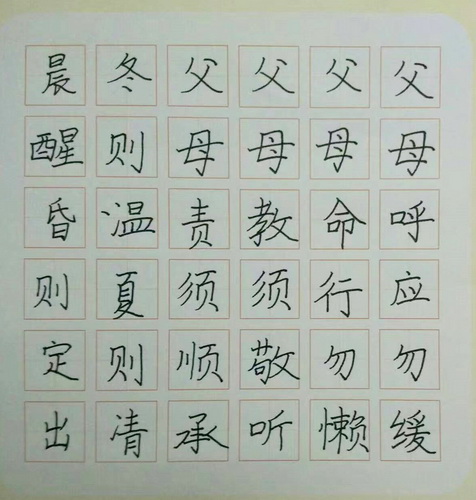 父母呼应勿缓
父母命行勿懒
父母教须敬听
父母责须顺承
冬则温夏则凊
晨醒昏则定出